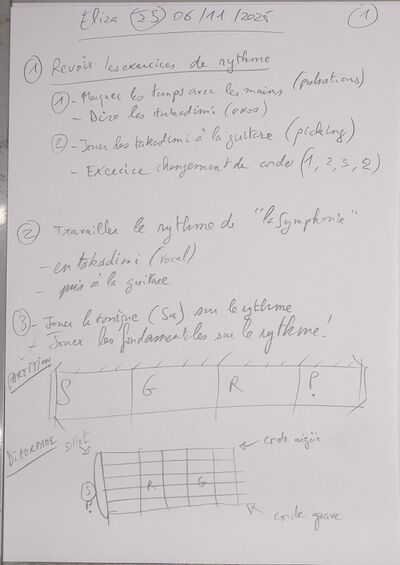 Eliza (25) 06/11/2025 (1)
① Revoir les exercices de rythme
① - Marquer les temps avec les mains (pulsations)
- Dire les takadimi (oros)
② - Jouer des takadimi à la guitare (picking)
- Exercice changement de corde (1, 2, 3, 2)
② Travailler le rythme de "la Symphonie"
- en takadimi (vocal)
- puis à la guitare
③ - Jouer la tonique (Sa) sur le rythme
- Jouer les fondamentales sur le rythme!
PARTITION
S G R P
DIAGRAMME
sillet
corde aigüe
S R G
P
corde grave